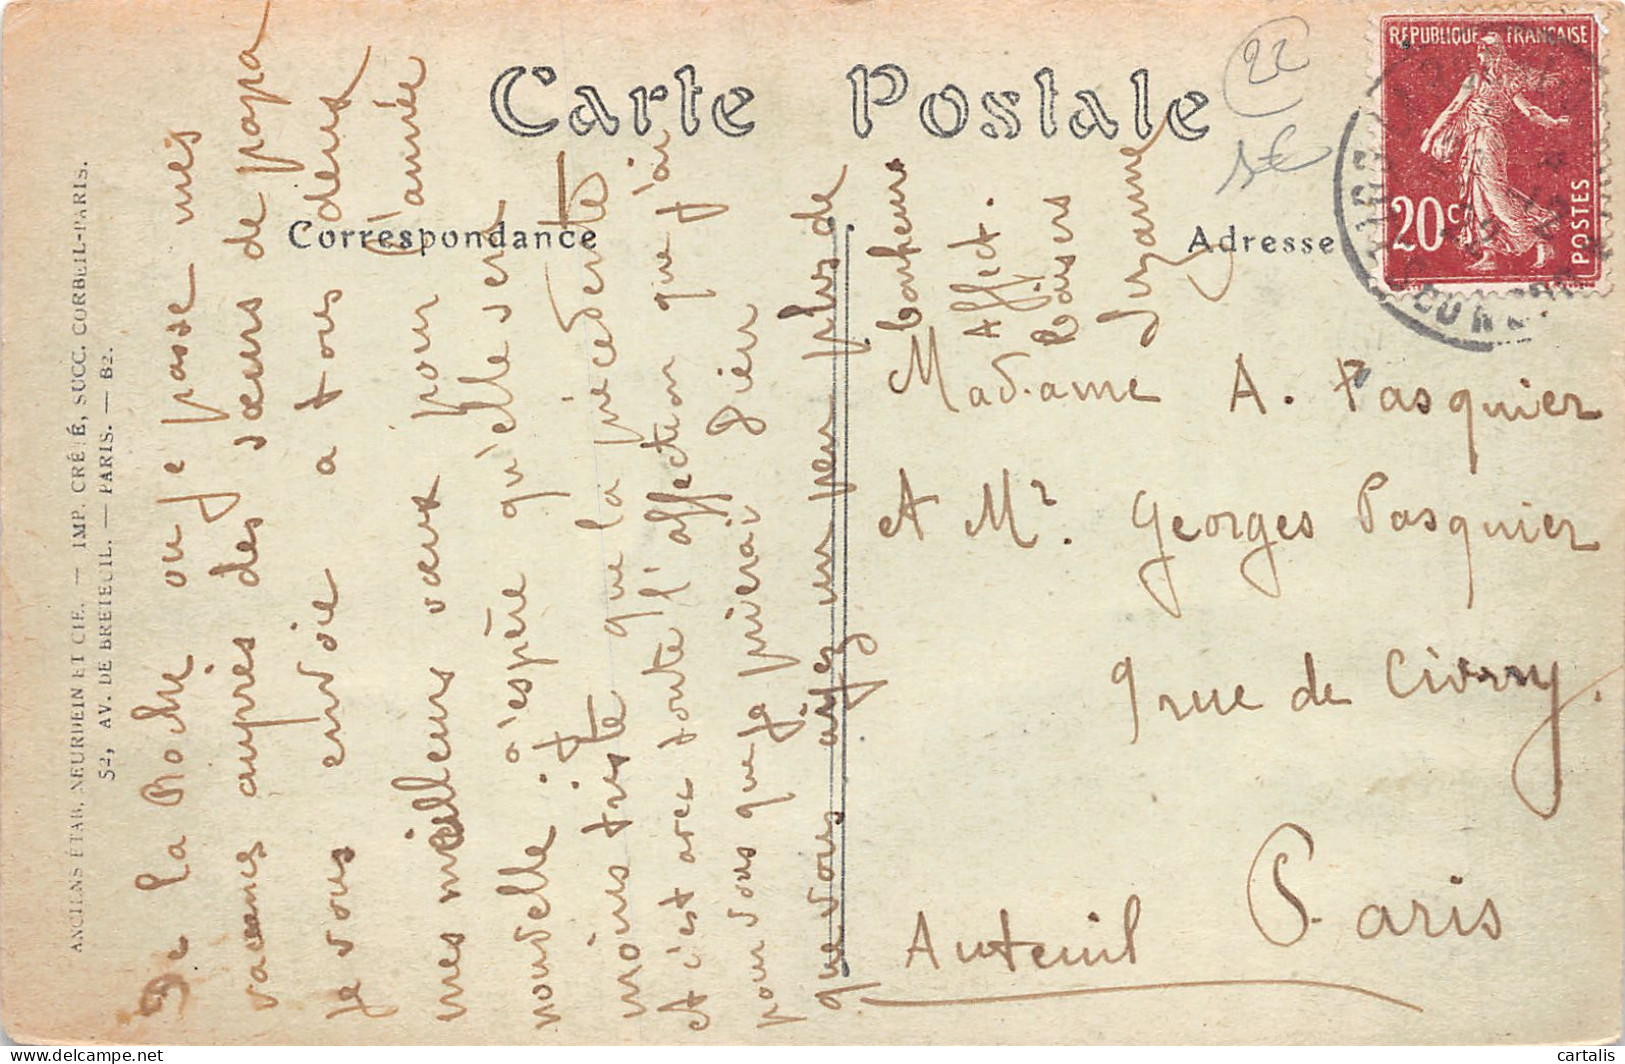 Carte Postale
Correspondance
Adresse
RÉPUBLIQUE FRANÇAISE
20c
POSTES
22
5€
ANCIENS ÉTAB. NEURDEIN ET CIE. — IMP. CRÉTÉ, SUCC. CORBEIL-PARIS.
52, AV. DE BRETEUIL. — PARIS. — B2.
De La Roche ou je passe mes
vacances auprès des sœurs de papa
je vous envoie a tous deux
mes meilleurs vœux pour l'année
nouvelle. j'espère qu'elle sera
moins triste que la précédente
Et c'est avec toute l'affection que j'ai
pour vous que je prierai Dieu
que vous ayez un peu plus de
bonheur
Affect.
baisers
Suzanne
Madame A. Pasquier
et Mr. Georges Pasquier
9 rue de Civry.
Paris
Auteuil
cartalis